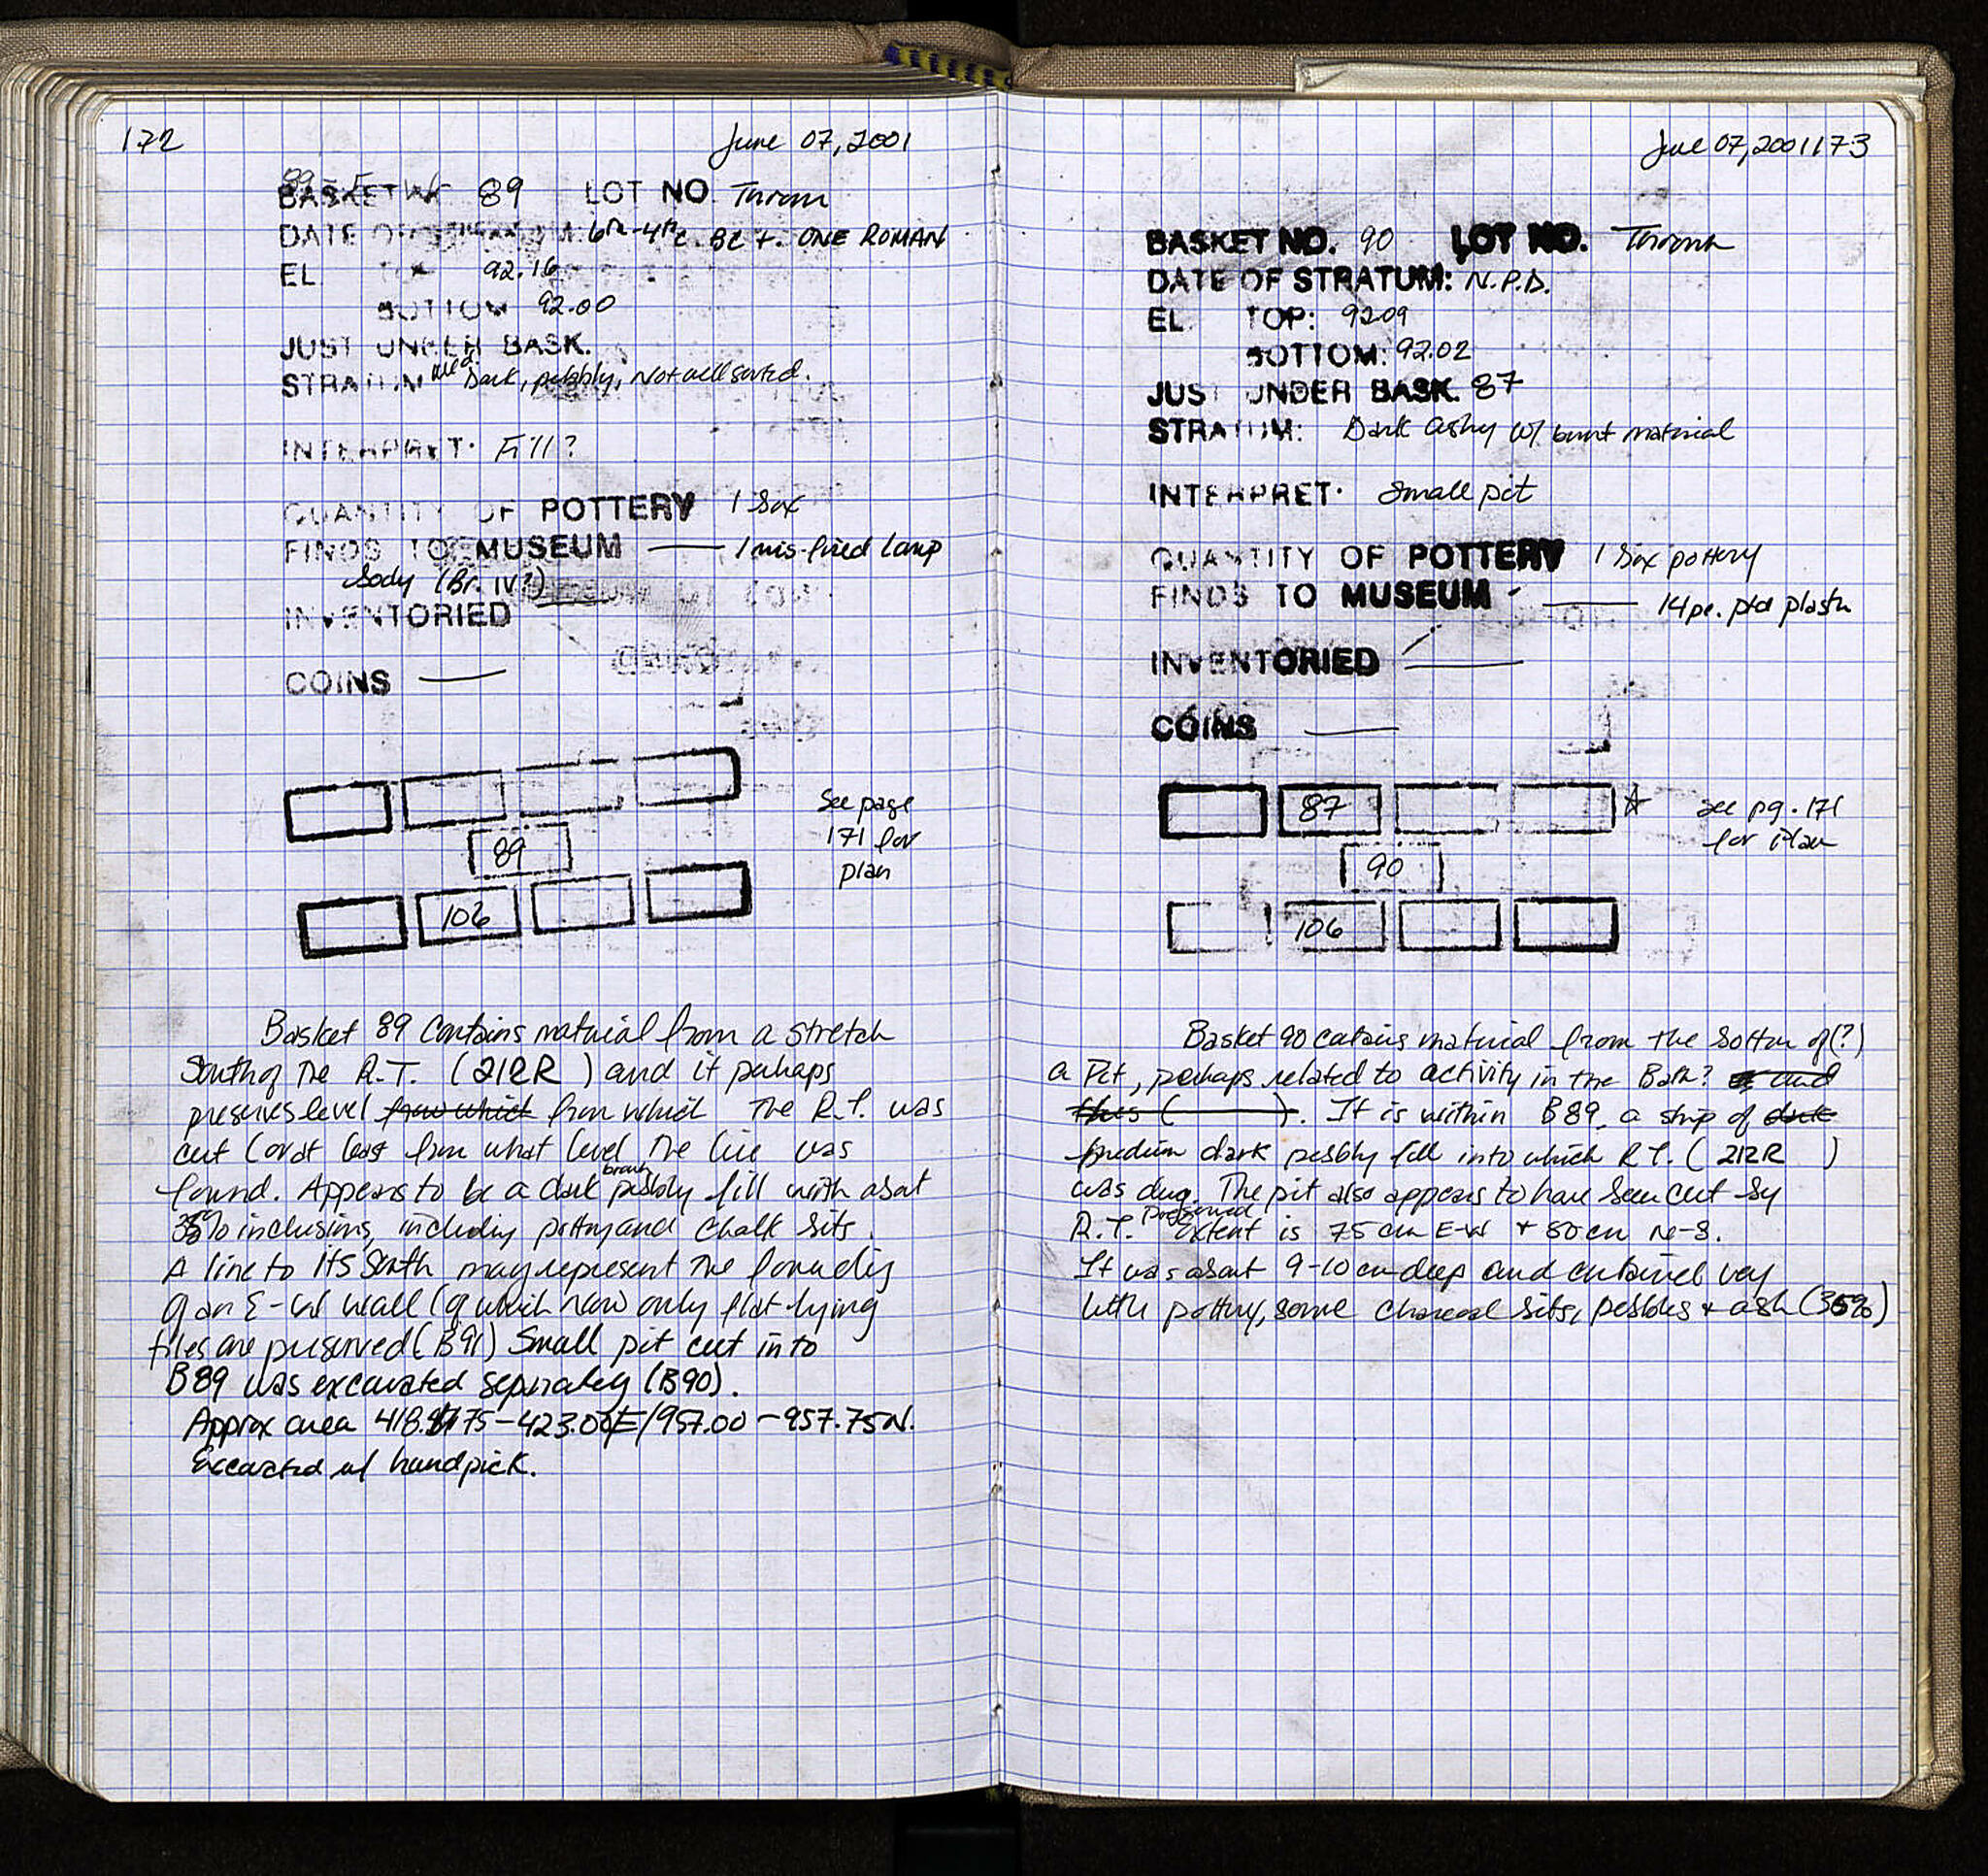 172 June 07, 2001
BASKET 89 LOT NO. Thrown
DATE OF 6th-4th c. BC + ONE ROMAN
EL. 92.16
BOTTOM 92.00
JUST UNDER BASK.
STRATUM med. Dark, pebbly, Not well sorted.
INTERPRET. Fill?
QUANTITY OF POTTERY 1 box
FINDS TO MUSEUM — 1 mis-fired lamp
body (Br. IV?)
INVENTORIED
COINS —
See page
171 for
plan
89
106
Basket 89 contains material from a stretch
South of the R.T. (212R) and it perhaps
preserves level from which from which the R.T. was
cut (or at least from what level the line was
found. Appears to be a dark brown pebbly fill with about
35% inclusions, including pottery and chalk bits.
A line to its South may represent the founding
of an E-W wall (of which now only flat lying
tiles are preserved (B91) Small pit cut into
B89 was excavated separately (B90).
Approx area 418.75-423.00E/957.00-957.75N.
Excavated w/ handpick.
June 07, 2001 173
BASKET NO. 90 LOT NO. Thrown
DATE OF STRATUM: N.P.D.
EL. TOP: 92.09
BOTTOM: 92.02
JUST UNDER BASK. 87
STRATUM: Dark ashy w/ burnt material
INTERPRET. Small pit
QUANTITY OF POTTERY 1 box pottery
FINDS TO MUSEUM — 14 pc. ptd plastr
INVENTORIED —
COINS —
87 ☆ see pg. 171
for Plan
90
106
Basket 90 contains material from the bottom of (?)
a Pit, perhaps related to activity in the Bath? and
thus ( ). It is within B89, a strip of dark
medium dark pebbly fill into which R.T. (212R )
was dug. The pit also appears to have been cut by
R.T. Preserved Extent is 75 cm E-W + 80 cm N-S.
It was about 9-10 cm deep and contained very
little pottery, some charcoal bits, pebbles + ash (35%)